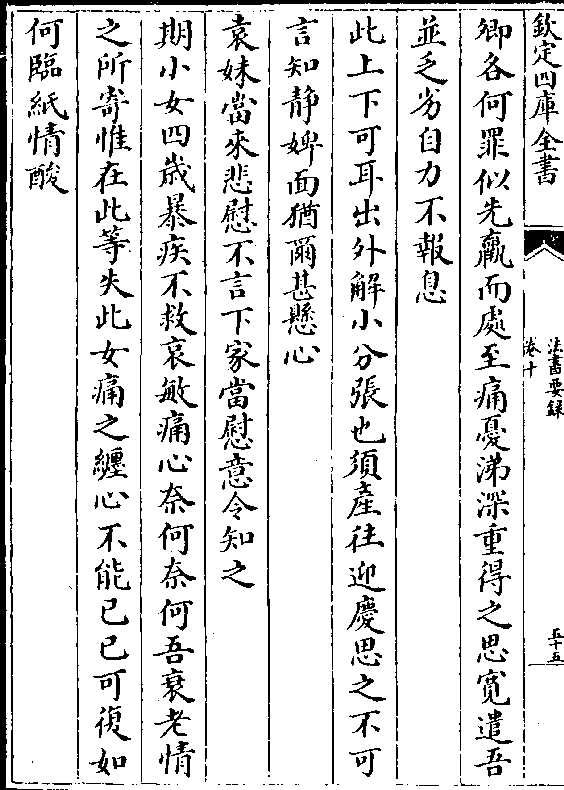 欽定四庫全書
法書要録
卷十
五十五
卿各何罪似先羸而處至痛憂涕深重得之思寛遣吾
並乏劣自力不報息
此上下可耳出外解小分張也須產往迎慶思之不可
言知静婢面猶爾甚懸心
袁妹當來悲慰不言下家當慰意令知之
期小女四嵗暴疾不救哀敏痛心奈何奈何吾衰老情
之所寄惟在此等失此女痛之纒心不能已已可復如
何臨紙情酸